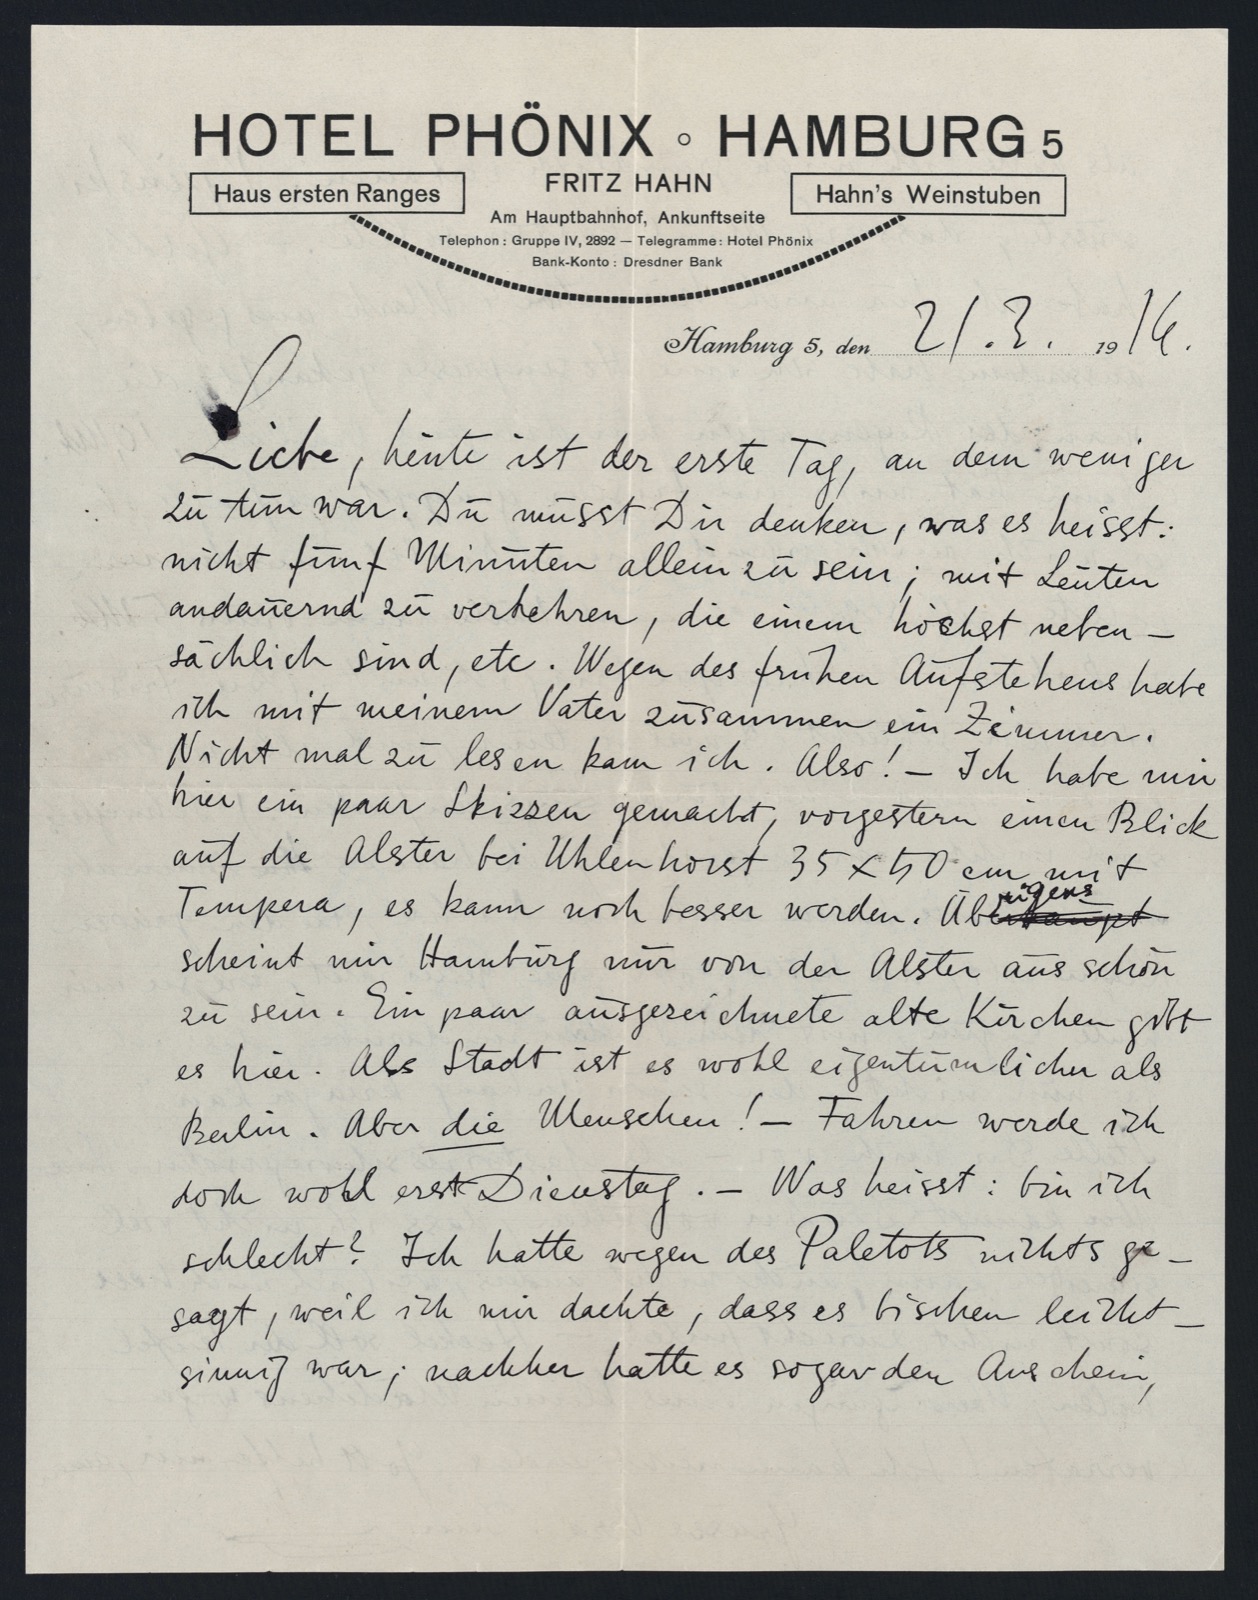 HOTEL PHÖNIX ◦ HAMBURG 5
Haus ersten Ranges
FRITZ HAHN
Hahn's Weinstuben
Am Hauptbahnhof, Ankunftseite
Telephon: Gruppe IV, 2892 — Telegramme: Hotel Phönix
Bank-Konto: Dresdner Bank
Hamburg 5, den 21.3. 1916.
Liebe, heute ist der erste Tag, an dem weniger
zu tun war. Du musst Dir denken, was es heisst:
nicht fünf Minuten allein zu sein; mit Leuten
andauernd zu verkehren, die einem höchst neben-
sächlich sind, etc. Wegen des frühen Aufstehens habe
ich mit meinem Vater zusammen ein Zimmer.
Nicht mal zu lesen kam ich. Also! – Ich habe mir
hier ein paar Skizzen gemacht, vorgestern einen Blick
auf die Alster bei Uhlenhorst 35 x 50 cm mit
Tempera, es kann noch besser werden. Überhaupt rigens
scheint mir Hamburg nur von der Alster aus schön
zu sein. Ein paar ausgezeichnete alte Kirchen gibt
es hier. Als Stadt ist es wohl eigentümlicher als
Berlin. Aber die Menschen! – Fahren werde ich
doch wohl erst Dienstag. – Was heisst: bin ich
schlecht? Ich hatte wegen des Paletots nichts ge-
sagt, weil ich mir dachte, dass es bischen leicht-
sinnig war; nachher hatte es sogar den Anschein,